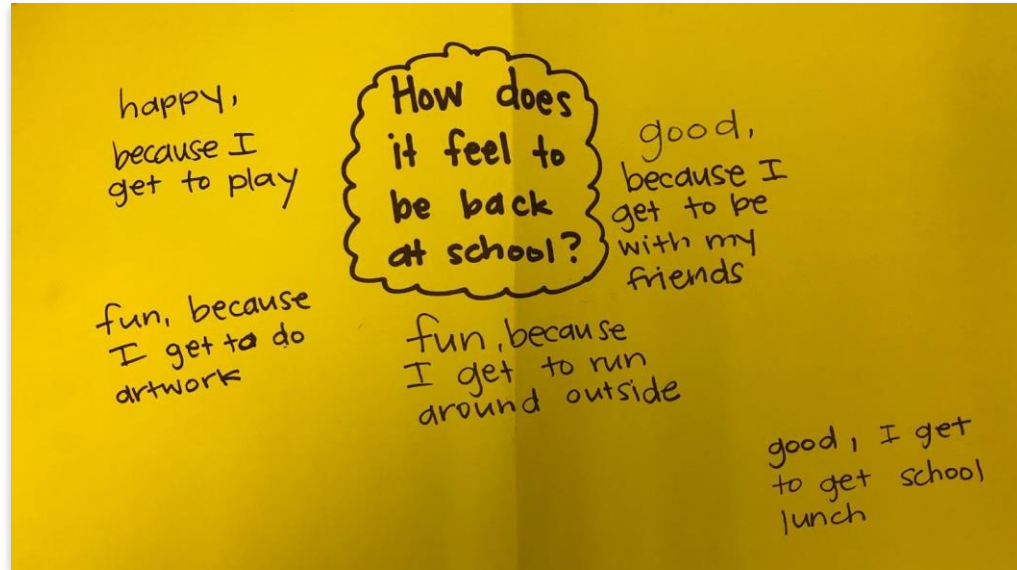 How does
it feel to
be back
at school?
happy,
because I
get to play
good,
because I
get to be
with my
friends
fun, because
I get to do
artwork
fun, because
I get to run
around outside
good, I get
to get school
lunch